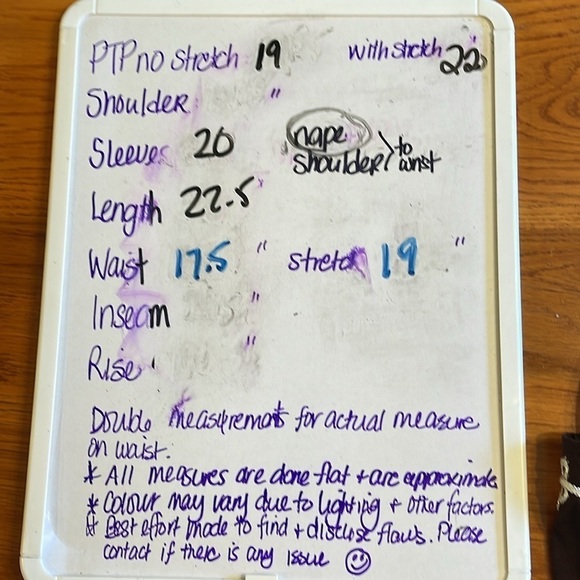 PTP no stretch 19 with stretch 22
Shoulder "
Sleeves 20 nape
shoulder > to wrist
Length 22.5 "
Waist 17.5 " stretch 19 "
Inseam "
Rise "
Double measurements for actual measure
on waist.
* All measures are done flat + are approximate
* Colour may vary due to lighting + other factors.
* Best effort made to find + disclose flaws. Please
contact if there is any issue ☺